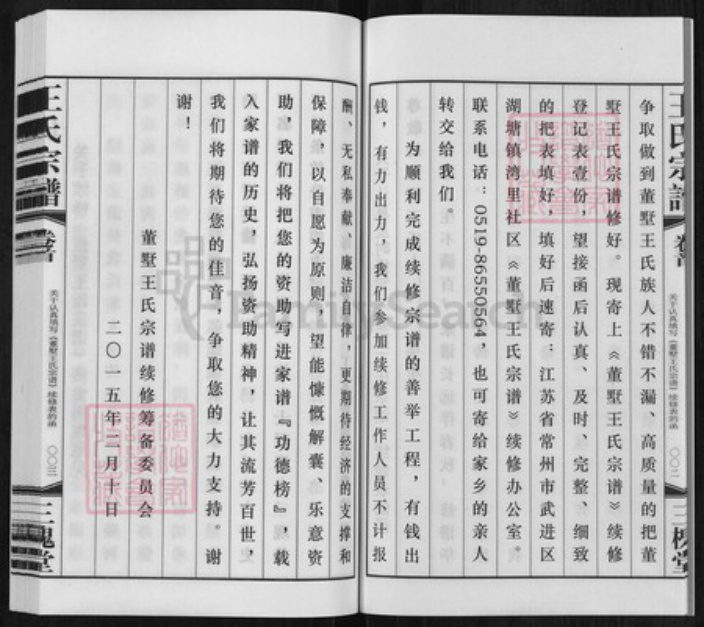 争取做到董墅王氏族人不错不漏、高质量的把董
墅王氏宗谱修好。现寄上《董墅王氏宗谱》续修
登记表壹份，望接函后认真、及时、完整、细致
的把表填好，填好后速寄：江苏省常州市武进区
湖塘镇湾里社区《董墅王氏宗谱》续修办公室。
联系电话：0519-86550564，也可寄给家乡的亲人
转交给我们。
为顺利完成续修宗谱的善举工程，有钱出
钱，有力出力，我们参加续修工作人员不计报
王氏宗谱
卷首
关于认真填写《董墅王氏宗谱》续修表的函
〇〇二
三槐堂
酬、无私奉献、廉洁自律，更期待经济的支撑和
保障，以自愿为原则，望能慷慨解囊、乐意资
助，我们将把您的资助写进家谱『功德榜』，载
入家谱的历史，弘扬资助精神，让其流芳百世，
我们将期待您的佳音，争取您的大力支持。谢
谢！
董墅王氏宗谱续修筹备委员会
二〇一五年二月十日
王氏宗谱
卷首
关于认真填写《董墅王氏宗谱》续修表的函
〇〇三
三槐堂
FamilySearch